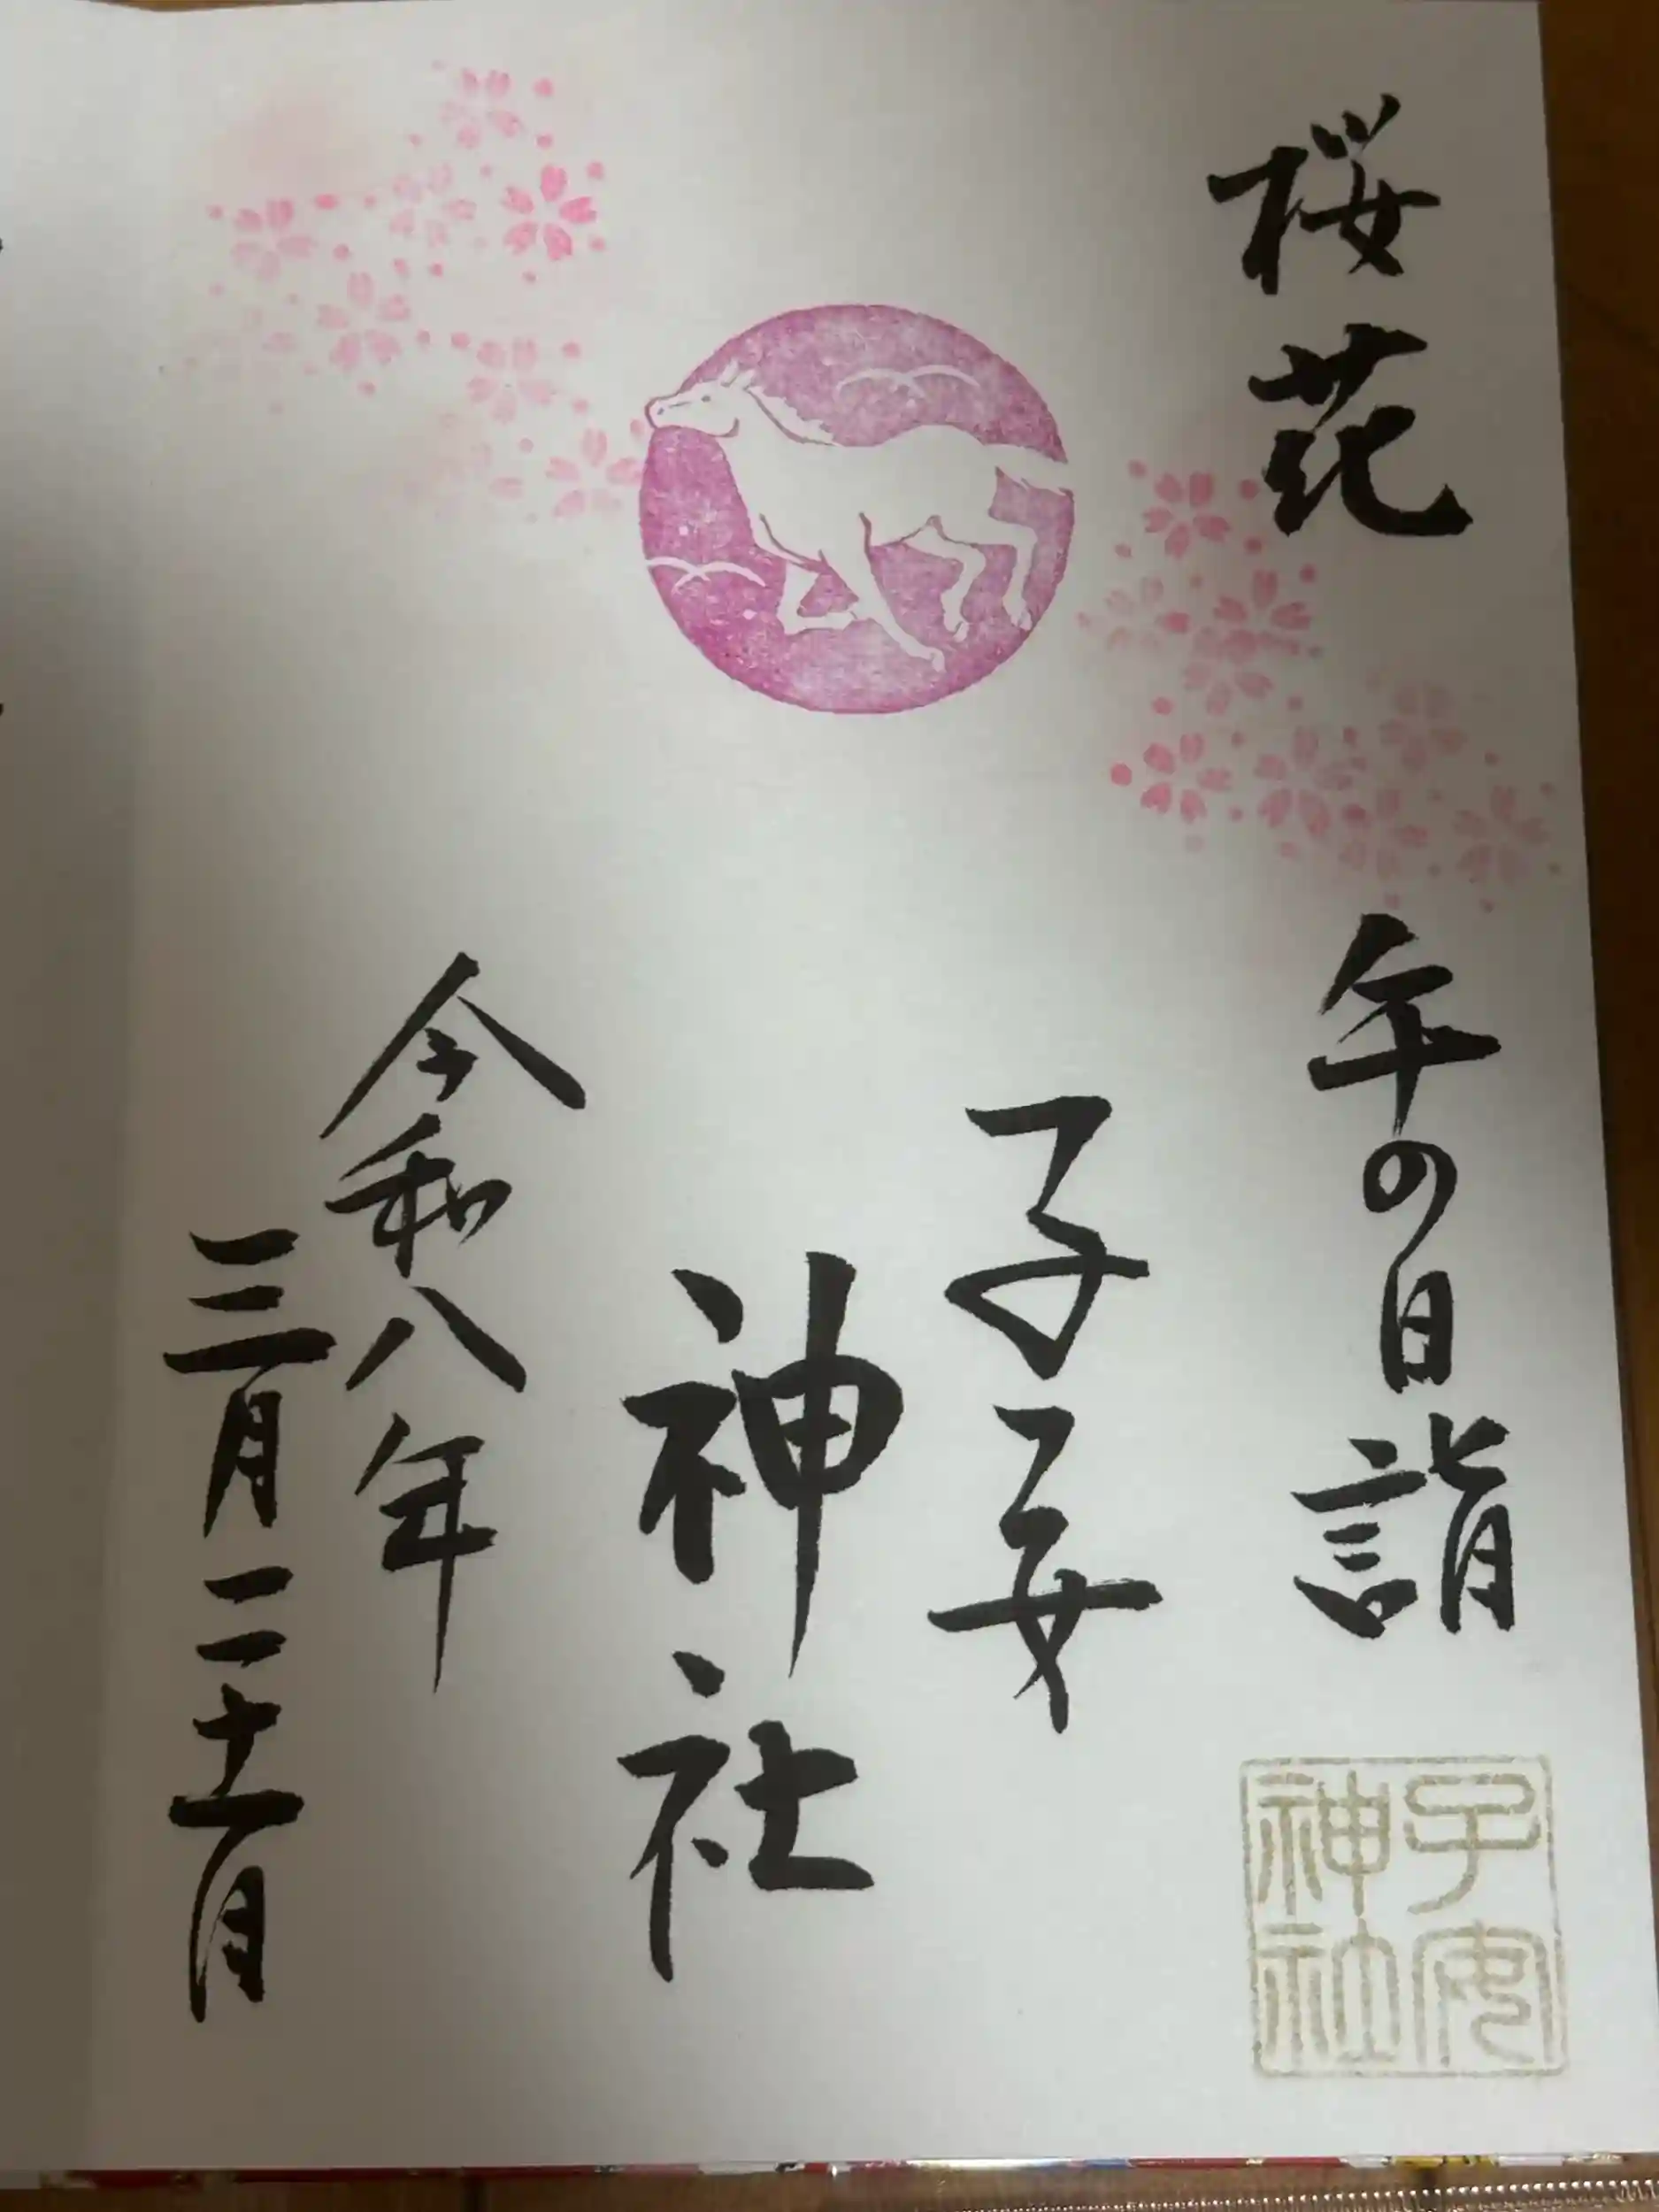 桜花
午の日詣
子安
神社
令和八年
三月二十一日
子安
神社